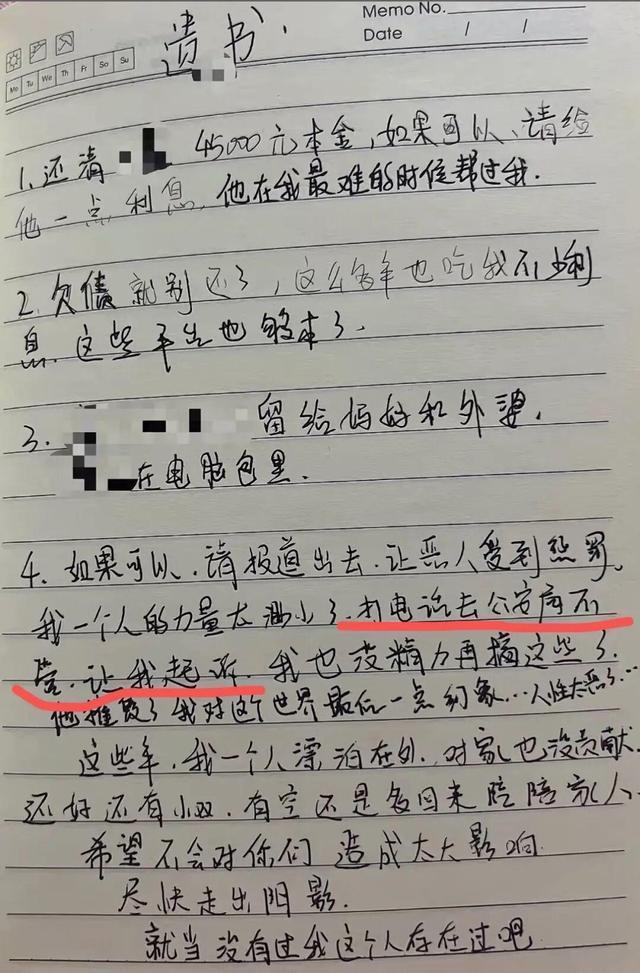 Memo No.
Date / /
Mo Tu We Th Fr Sa Su
遗书.
1.还清 45000元本金,如果可以,请给
他一点利息,他在我最难的时候帮过我.
2.欠债就别还了,这么多年也吃我不少利
息.这些平台也够本了.
3. 留给妈妈和外婆.
在电脑包里.
4.如果可以,请报道出去.让恶人受到惩罚.
我一个人的力量太渺小了.打电话去公安局不
管.让我起诉.我也没精力再搞这些了.
他摧毁了我对这个世界最后一点幻象...人性太恶了...
这些年,我一个人漂泊在外.对家也没贡献.
还好还有小双.有空还是多回来陪陪家人.
希望不会对你们造成太大影响.
尽快走出阴影.
就当没有过我这个人存在过吧